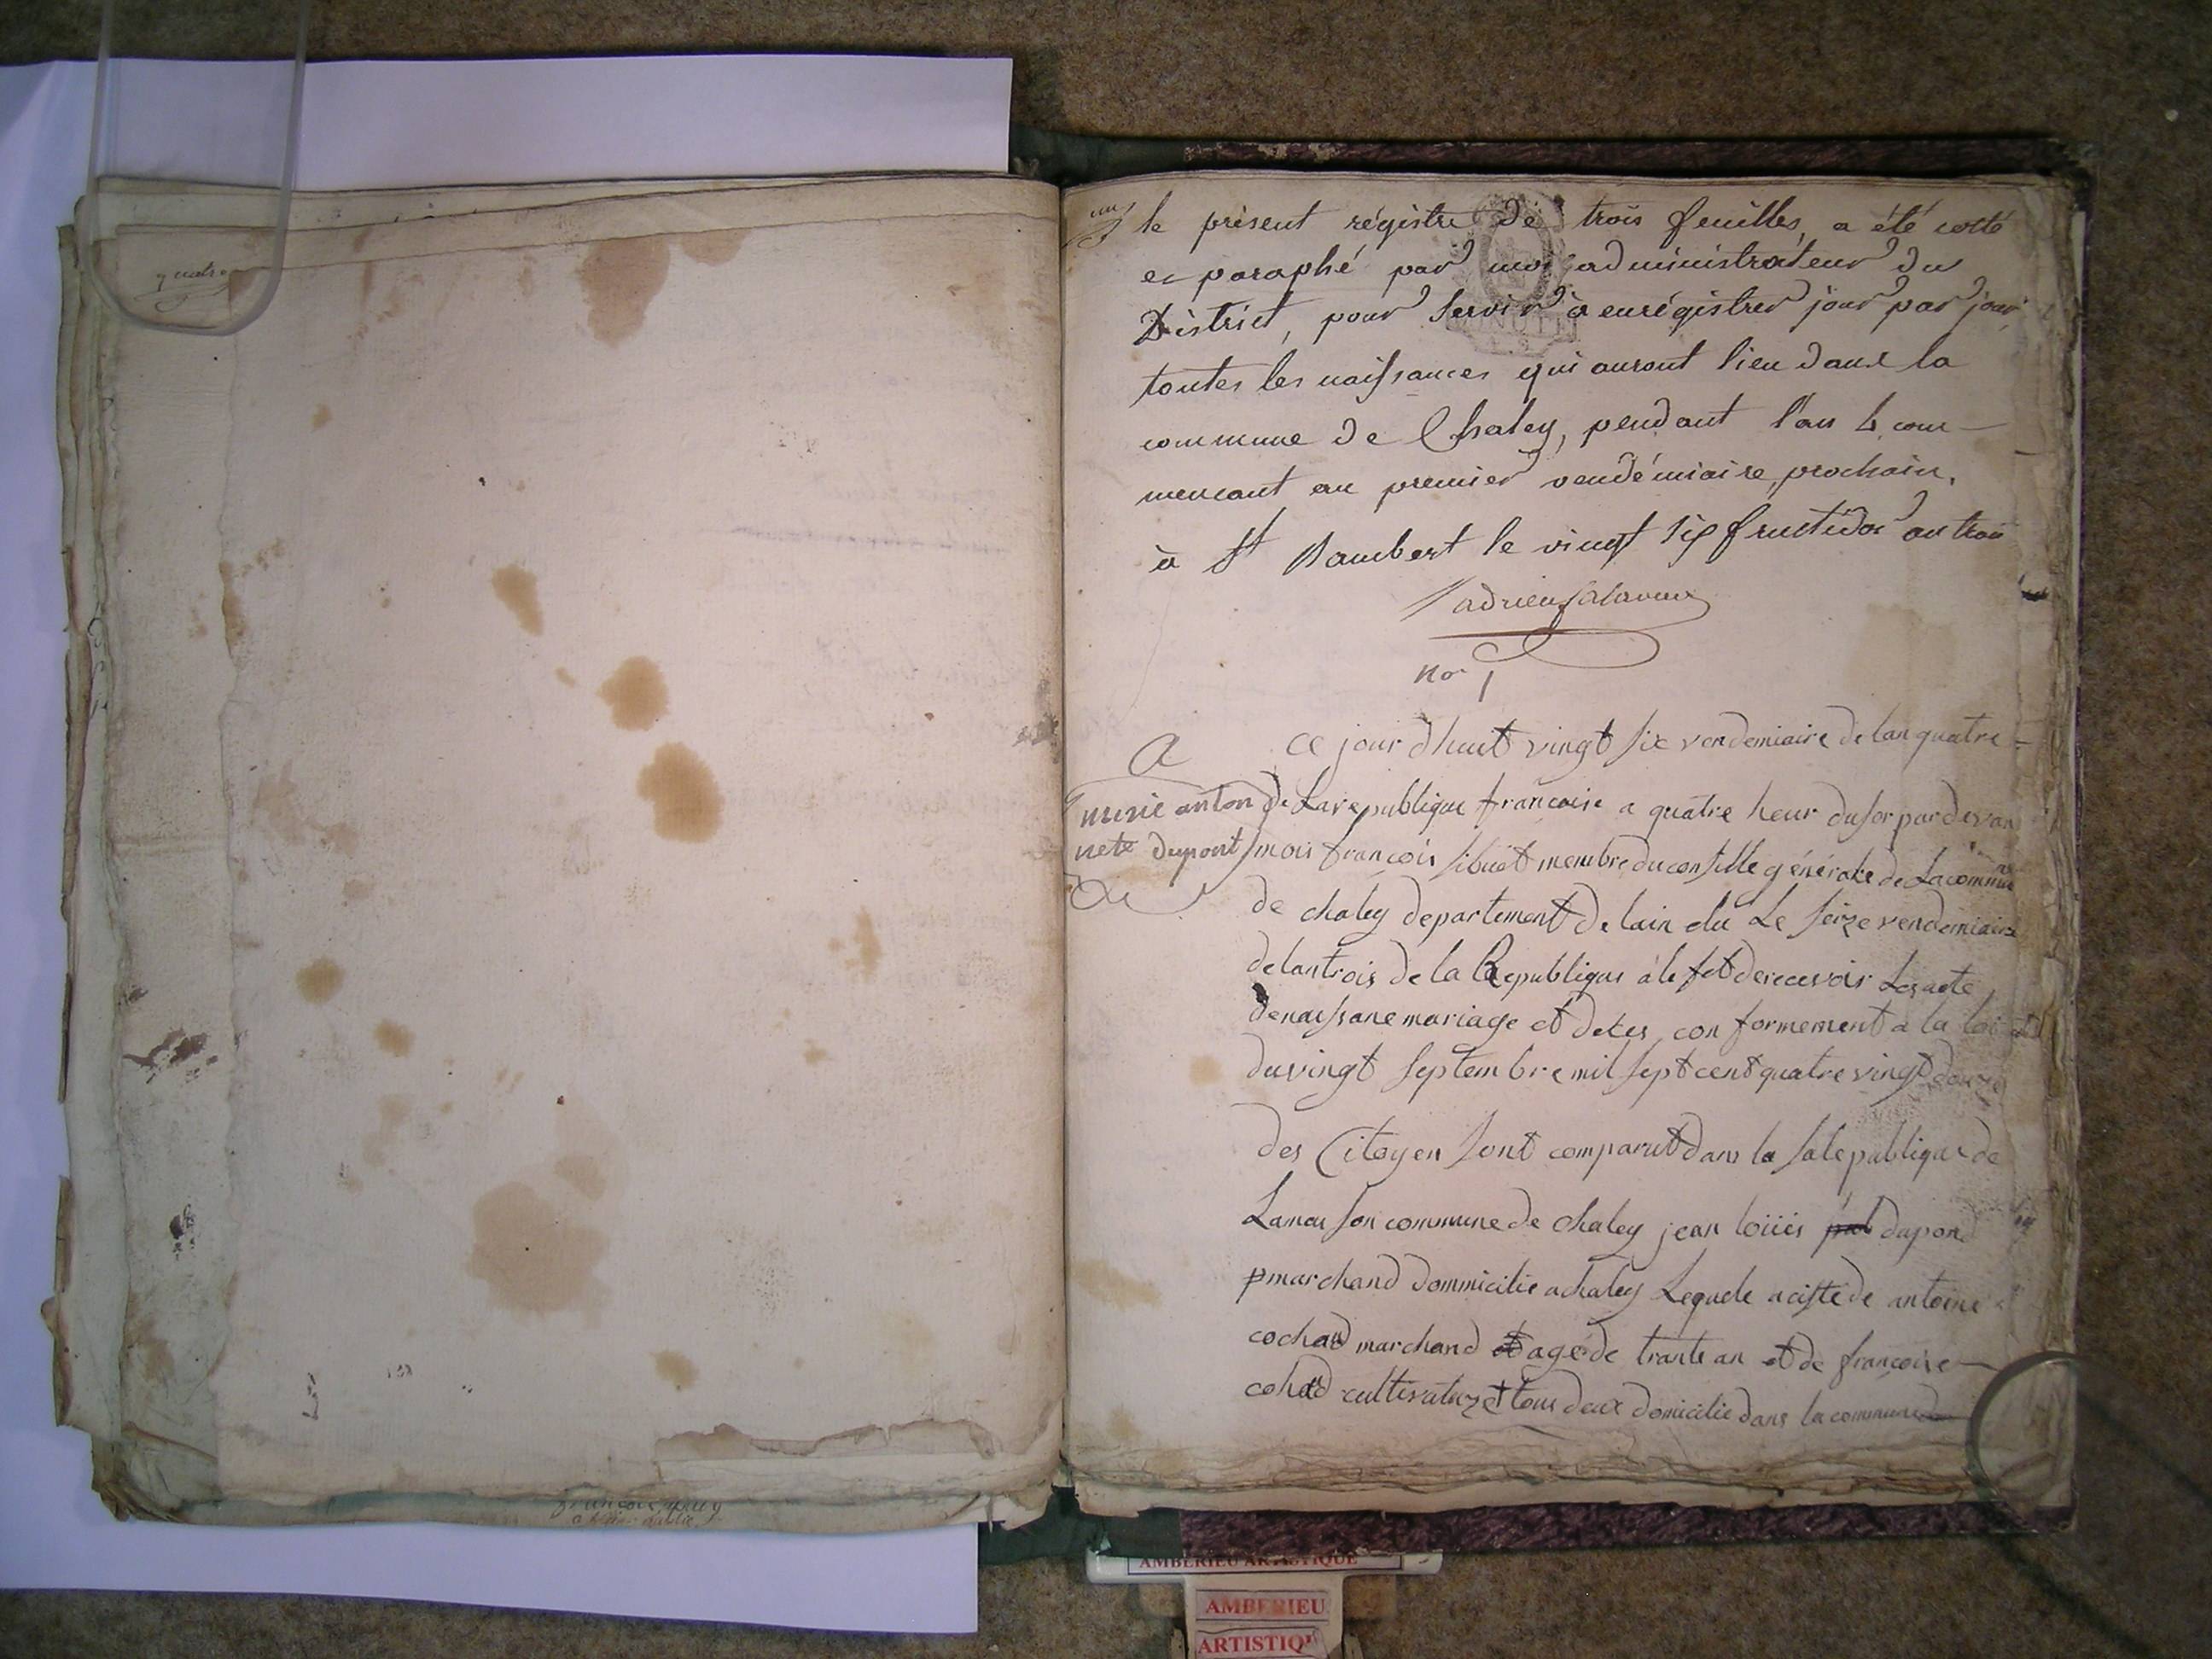 quatre
un
le présent régistre de trois feuilles, a été cotté
et paraphé par moi administrateur du
District, pour servir à enrégistrer jour par jour,
toutes les naissances qui auront lieu dans la
commune de Chaley, pendant l'an 4 com-
mencant au premier vendémiaire prochain,
à St Rambert le vingt six fructidor an trois
MINUTE
no 1
ce jour dhuit vingt six vendemiaire de lan quatre
A
marie anton
nete dupont
de Larepublique francaise a quatre heur dusor pardevan
mois francois sibuet membre du consille générale de Lacommune
de chaley departement de lain elu Le seize vendemiaire
delantrois de la Republique à le fet derecevoir Les acte
denaissane mariage et deces conformement a la loi
duvingt septembre mil sept cent quatre vingt douze
des Citoyen sont comparut dans la sale publique de
Lamaison commune de chaley jean loüis dupond
marchand dommicilie a chaley Lequele aciste de antoine
cochard marchand agé de trante an et de francoise
cohard cultivateur et tous deux domicilie dans la commune
AMBERIEU ARTISTIQUE
AMBERIEU
ARTISTIQU